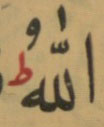 اللّٰهُ ط